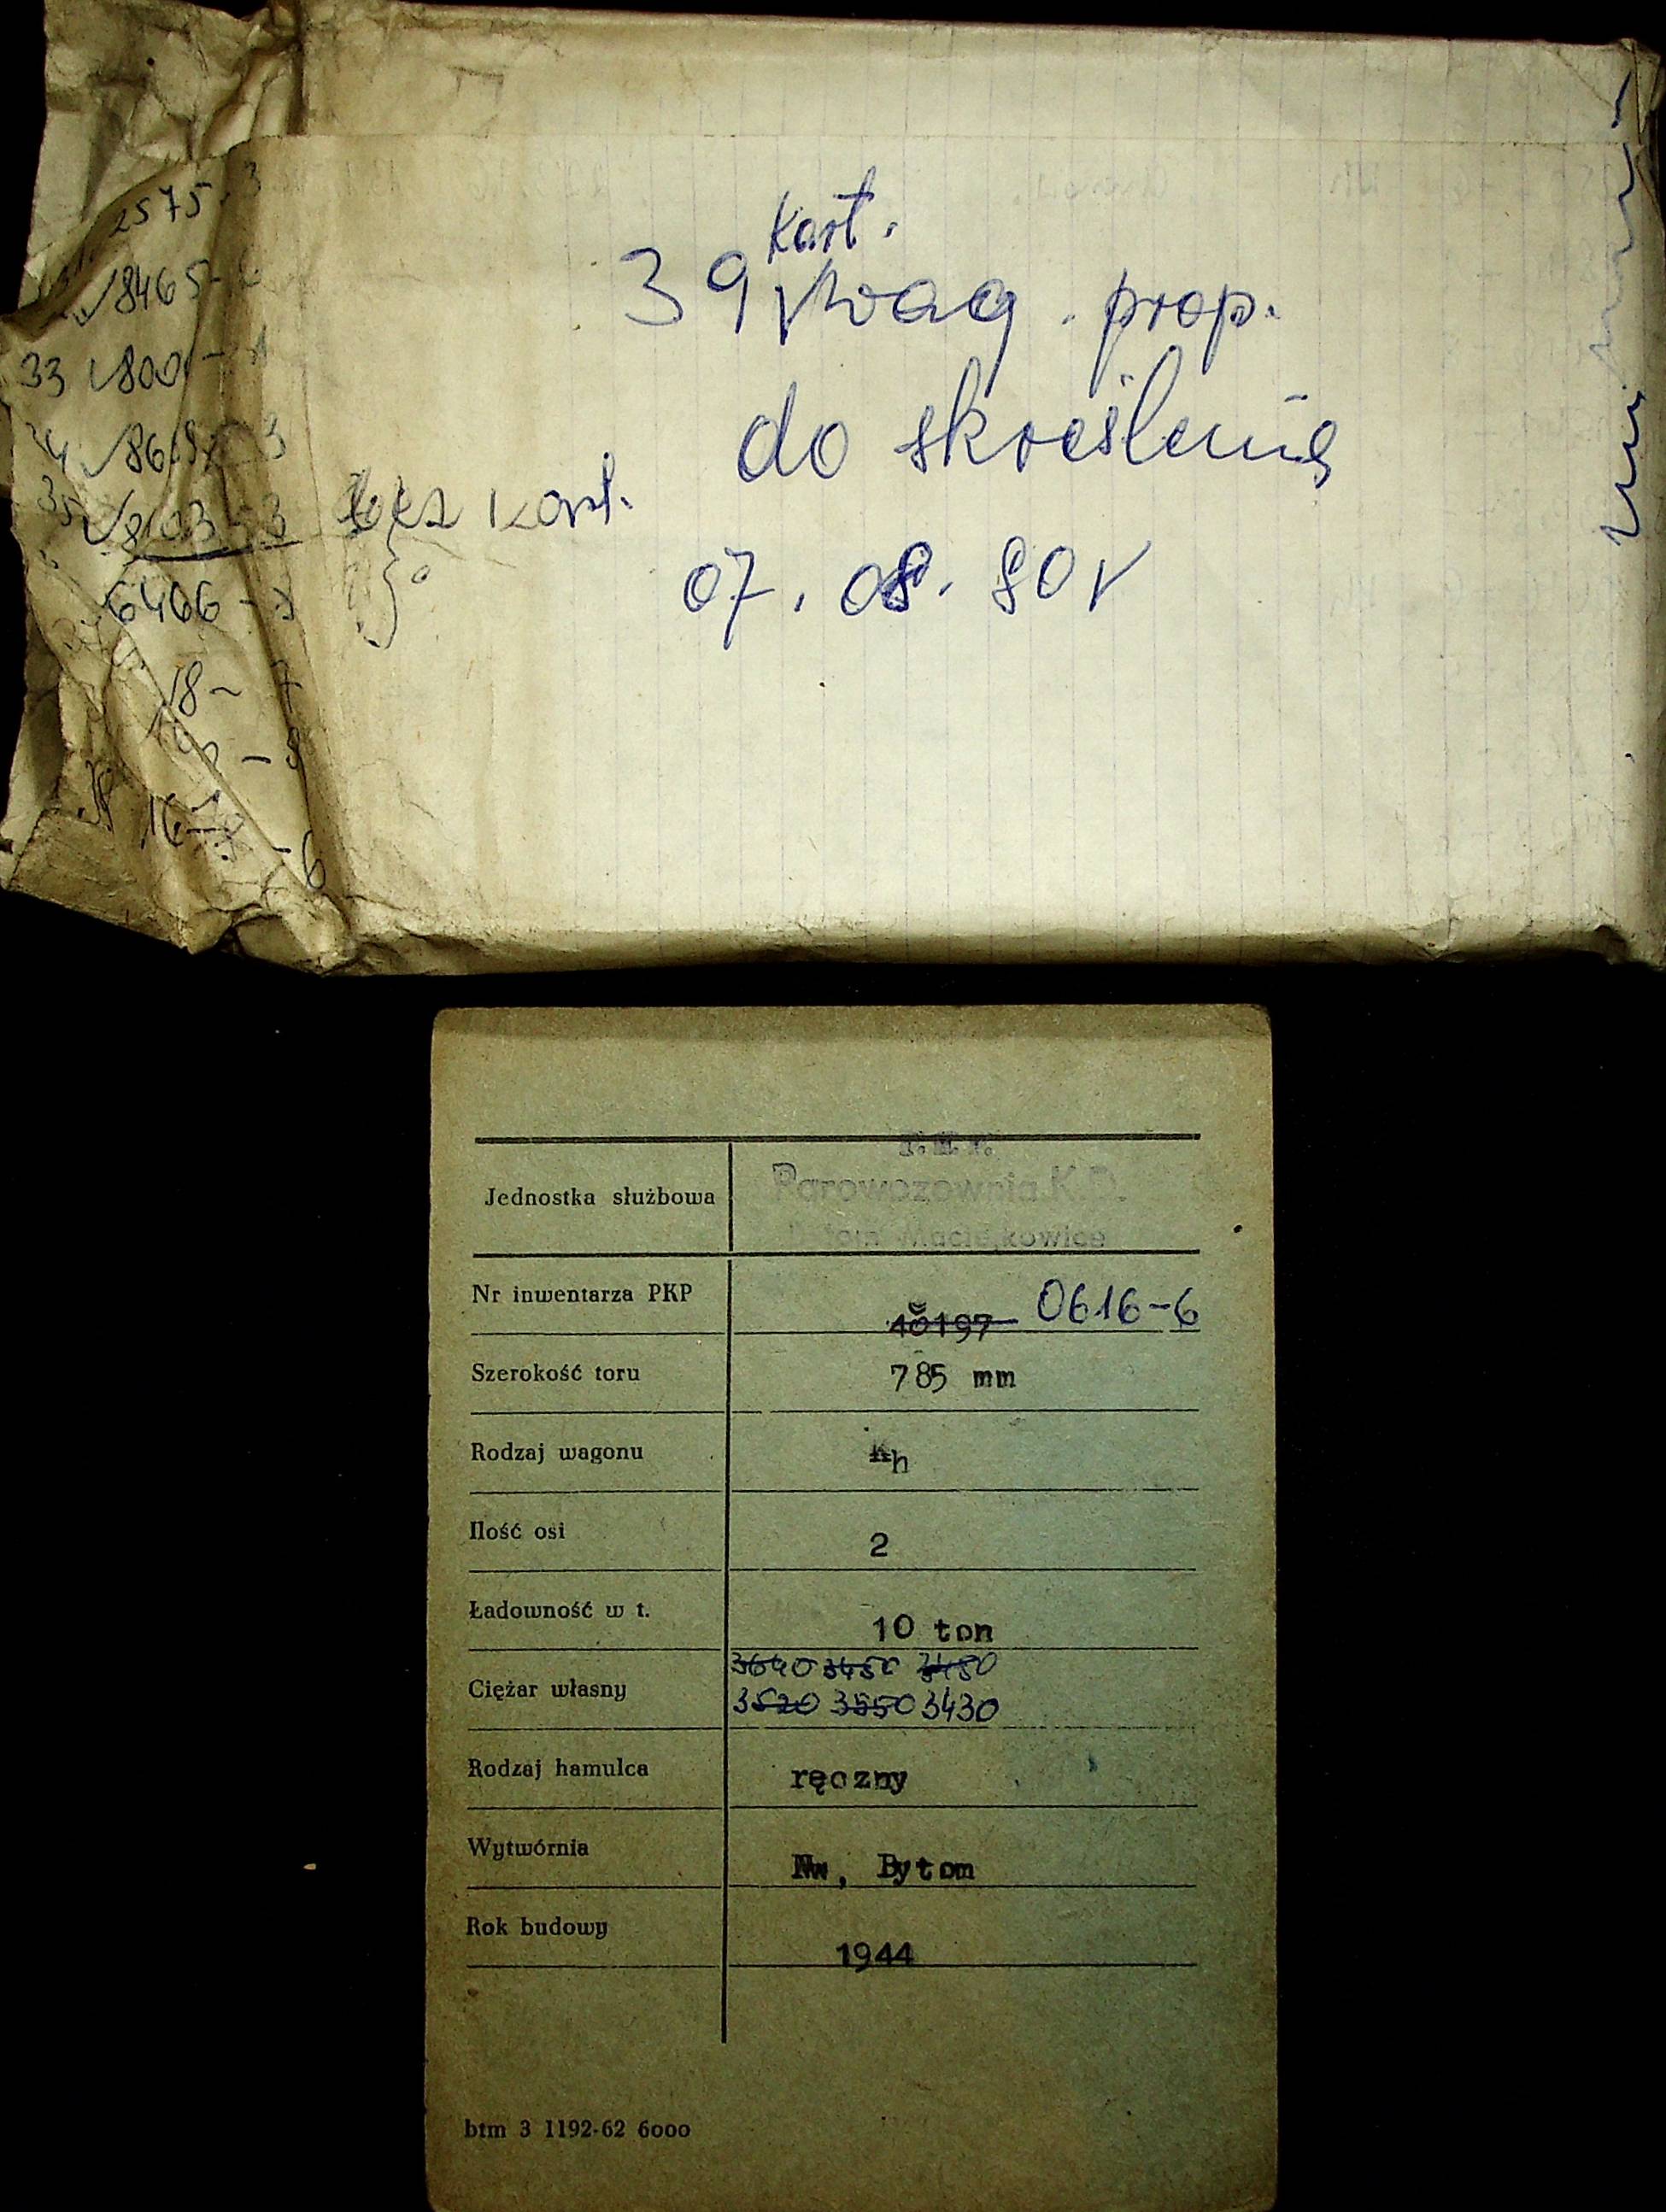 2575-3
8465-6
33 800 - 1
35 8103-3 bez kart.
6466 -
18- 7
16-
-6
kart.
39 wag. prop.
do skreślenia
07.08.80r
P.K.P.
Jednostka służbowa Parowozownia K.D.
Maciejkowice
Nr inwentarza PKP 10197 0616-6
Szerokość toru 785 mm
Rodzaj wagonu Kh
Ilość osi 2
Ładowność w t. 10 ton
3640 3450 3480
Ciężar własny 3520 3550 3430
Rodzaj hamulca ręczny
Wytwórnia Nw, Bytom
Rok budowy 1944
btm 3 1192-62 6000